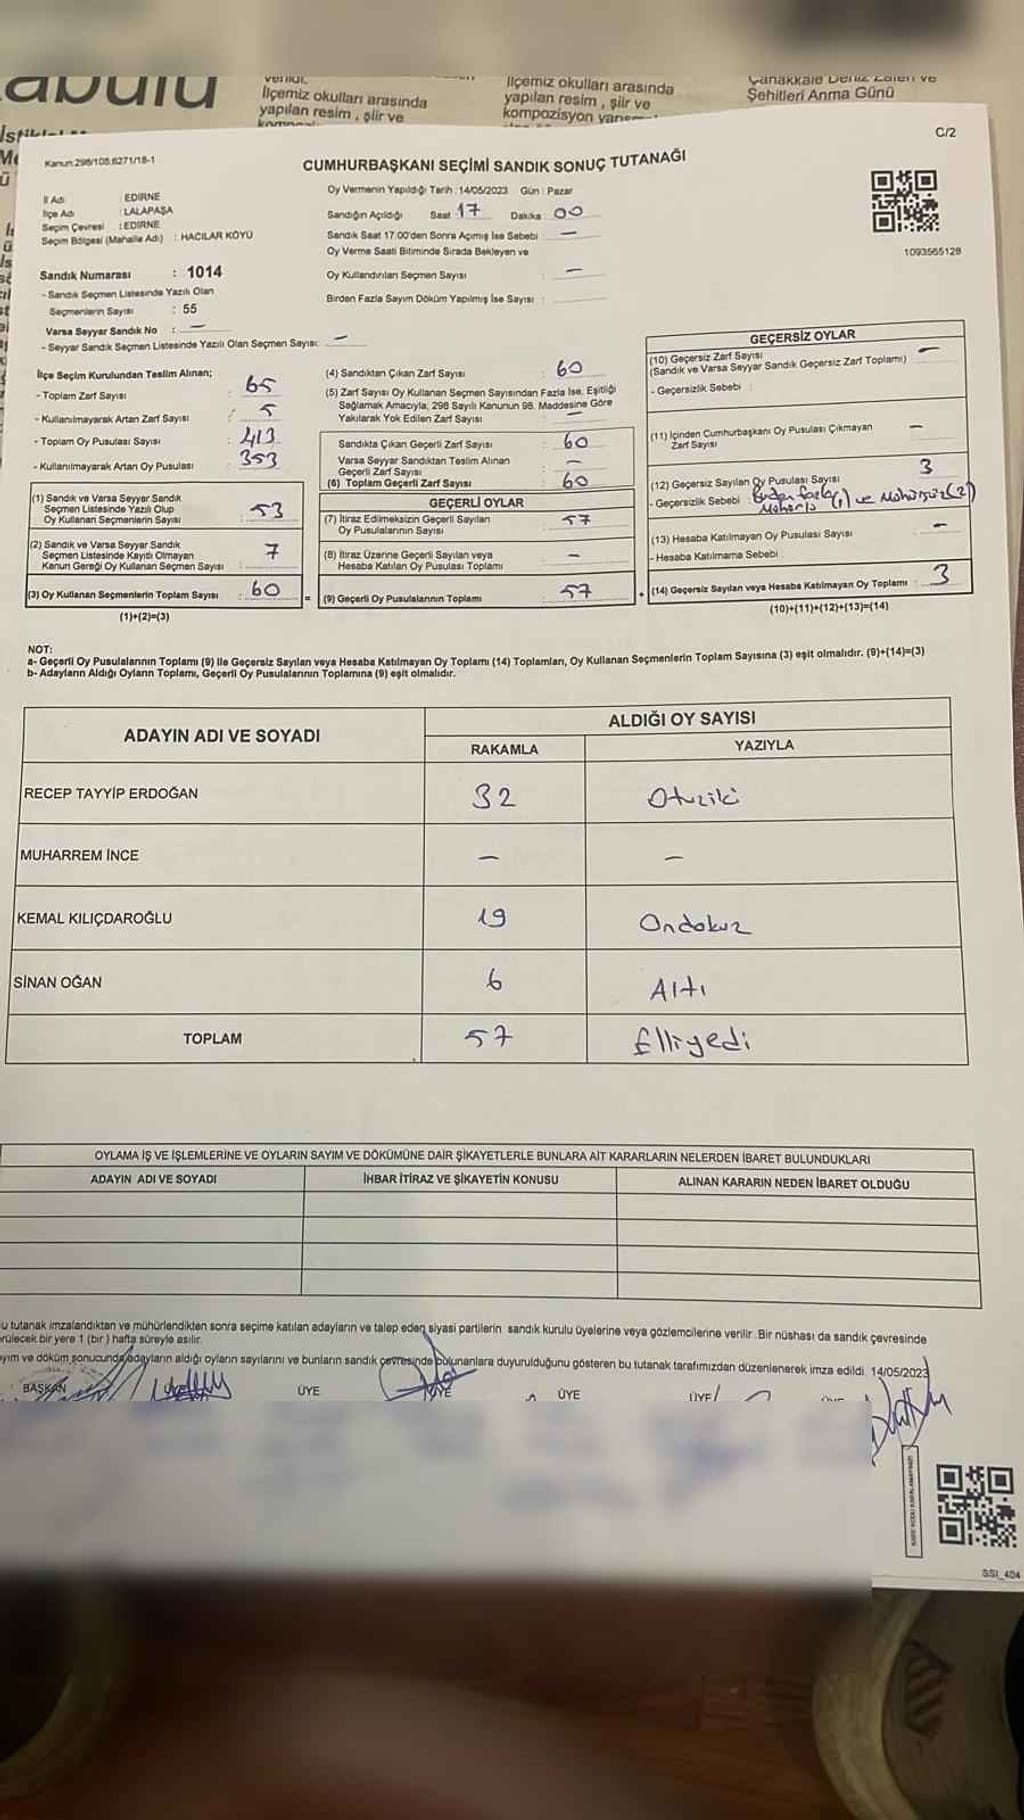 abulu
İlçemiz okulları arasında
yapılan resim , şiir ve
İlçemiz okulları arasında
yapılan resim , şiir ve
kompozisyon
Çanakkale Deniz Zaferi ve
Şehitleri Anma Günü
C/2
Kanun:298/108,6271/18-1
CUMHURBAŞKANI SEÇİMİ SANDIK SONUÇ TUTANAĞI
1093565128
İl Adı : EDİRNE
İlçe Adı : LALAPAŞA
Seçim Çevresi : EDİRNE
Seçim Bölgesi (Mahalle Adı) : HACILAR KÖYÜ
Sandık Numarası : 1014
- Sandık Seçmen Listesinde Yazılı Olan
Seçmenlerin Sayısı : 55
Varsa Seyyar Sandık No : —
- Seyyar Sandık Seçmen Listesinde Yazılı Olan Seçmen Sayısı: —
Oy Vermenin Yapıldığı Tarih :14/05/2023 Gün : Pazar
Sandığın Açıldığı Saat 17 Dakika 00
Sandık Saat 17.00'den Sonra Açılmış İse Sebebi : —
Oy Verme Saati Bitiminde Sırada Bekleyen ve
Oy Kullandırılan Seçmen Sayısı : —
Birden Fazla Sayım Döküm Yapılmış İse Sayısı :
İlçe Seçim Kurulundan Teslim Alınan;
- Toplam Zarf Sayısı : 65
- Kullanılmayarak Artan Zarf Sayısı : 5
- Toplam Oy Pusulası Sayısı : 413
- Kullanılmayarak Artan Oy Pusulası : 353
(1) Sandık ve Varsa Seyyar Sandık
Seçmen Listesinde Yazılı Olup
Oy Kullanan Seçmenlerin Sayısı : 53
(2) Sandık ve Varsa Seyyar Sandık
Seçmen Listesinde Kayıtlı Olmayan
Kanun Gereği Oy Kullanan Seçmen Sayısı : 7
(3) Oy Kullanan Seçmenlerin Toplam Sayısı : 60
(1)+(2)=(3)
(4) Sandıktan Çıkan Zarf Sayısı : 60
(5) Zarf Sayısı Oy Kullanan Seçmen Sayısından Fazla İse, Eşitliği
Sağlamak Amacıyla; 298 Sayılı Kanunun 98. Maddesine Göre
Yakılarak Yok Edilen Zarf Sayısı : —
Sandıkta Çıkan Geçerli Zarf Sayısı : 60
Varsa Seyyar Sandıktan Teslim Alınan
Geçerli Zarf Sayısı : —
(6) Toplam Geçerli Zarf Sayısı : 60
GEÇERLİ OYLAR
(7) İtiraz Edilmeksizin Geçerli Sayılan
Oy Pusulalarının Sayısı : 57
(8) İtiraz Üzerine Geçerli Sayılan veya
Hesaba Katılan Oy Pusulası Toplamı : —
= (9) Geçerli Oy Pusulalarının Toplamı : 57
GEÇERSİZ OYLAR
(10) Geçersiz Zarf Sayısı —
(Sandık ve Varsa Seyyar Sandık Geçersiz Zarf Toplamı)
- Geçersizlik Sebebi :
(11) İçinden Cumhurbaşkanı Oy Pusulası Çıkmayan
Zarf Sayısı —
(12) Geçersiz Sayılan Oy Pusulası Sayısı 3
- Geçersizlik Sebebi : Birden fazla (1) ve Mühürsüz (2)
(13) Hesaba Katılmayan Oy Pusulası Sayısı —
- Hesaba Katılmama Sebebi :
+ (14) Geçersiz Sayılan veya Hesaba Katılmayan Oy Toplamı : 3
(10)+(11)+(12)+(13)=(14)
NOT:
a- Geçerli Oy Pusulalarının Toplamı (9) ile Geçersiz Sayılan veya Hesaba Katılmayan Oy Toplamı (14) Toplamları, Oy Kullanan Seçmenlerin Toplam Sayısına (3) eşit olmalıdır. (9)+(14)=(3)
b- Adayların Aldığı Oyların Toplamı, Geçerli Oy Pusulalarının Toplamına (9) eşit olmalıdır.
ADAYIN ADI VE SOYADI
ALDIĞI OY SAYISI
RAKAMLA YAZIYLA
RECEP TAYYİP ERDOĞAN 32 Otuziki
MUHARREM İNCE — —
KEMAL KILIÇDAROĞLU 19 Ondokuz
SİNAN OĞAN 6 Altı
TOPLAM 57 Elliyedi
OYLAMA İŞ VE İŞLEMLERİNE VE OYLARIN SAYIM VE DÖKÜMÜNE DAİR ŞİKAYETLERLE BUNLARA AİT KARARLARIN NELERDEN İBARET BULUNDUKLARI
ADAYIN ADI VE SOYADI İHBAR İTİRAZ VE ŞİKAYETİN KONUSU ALINAN KARARIN NEDEN İBARET OLDUĞU
u tutanak imzalandıktan ve mühürlendikten sonra seçime katılan adayların ve talep eden siyasi partilerin sandık kurulu üyelerine veya gözlemcilerine verilir .Bir nüshası da sandık çevresinde
rülecek bir yere 1 (bir ) hafta süreyle asılır.
yım ve döküm sonucunda adayların aldığı oyların sayılarını ve bunların sandık çevresinde bulunanlara duyurulduğunu gösteren bu tutanak tarafımızdan düzenlenerek imza edildi. 14/05/2023
BAŞKAN ÜYE ÜYE ÜYE ÜYE
SSI_404